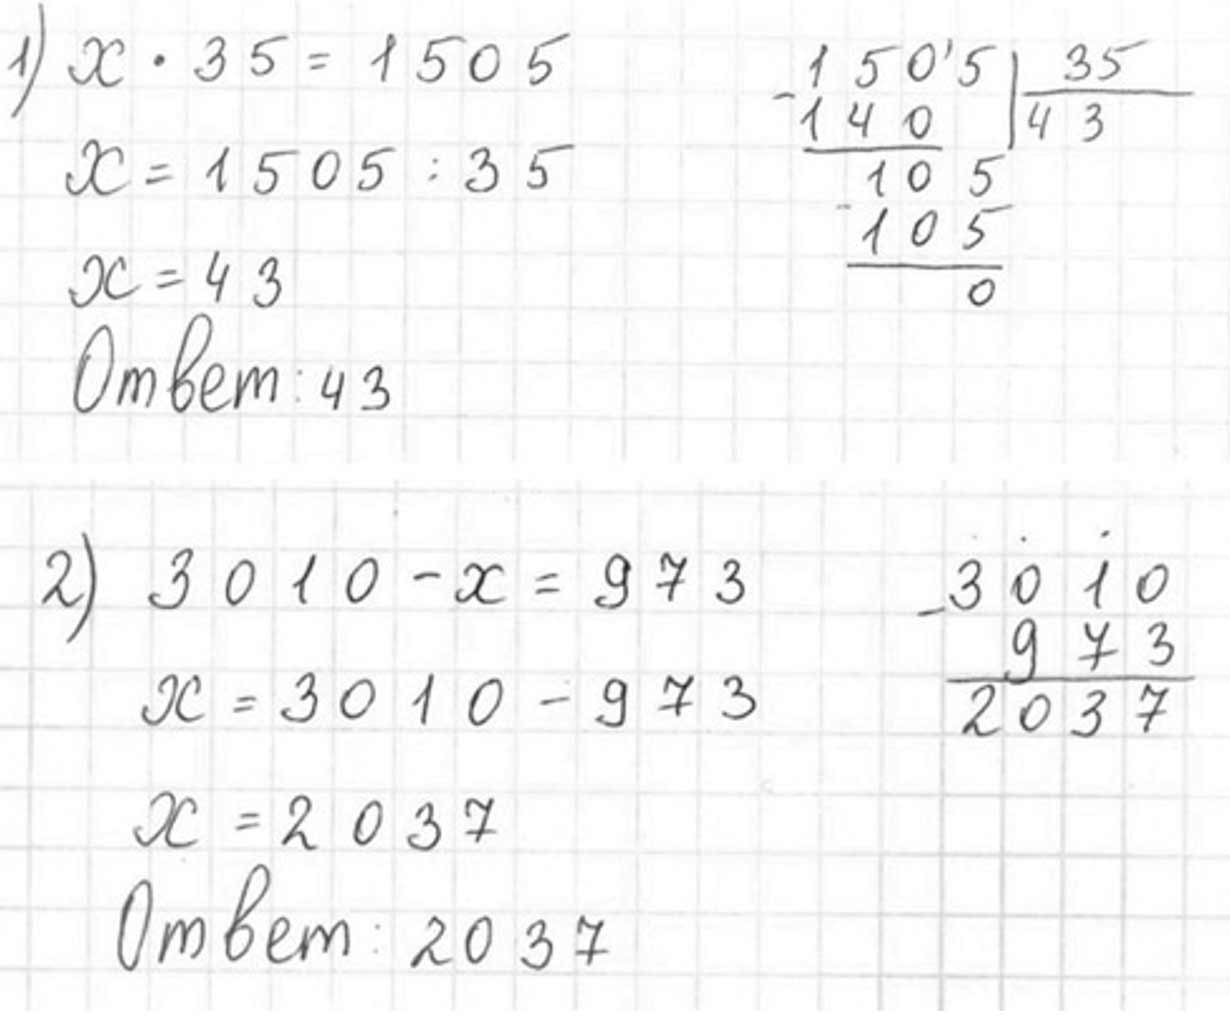 1) x · 35 = 1505
x = 1505 : 35
x = 43
Ответ: 43
1505 | 35
- 140 | 43
105
- 105
0
2) 3010 - x = 973
x = 3010 - 973
x = 2037
Ответ: 2037
- 3010
973
2037